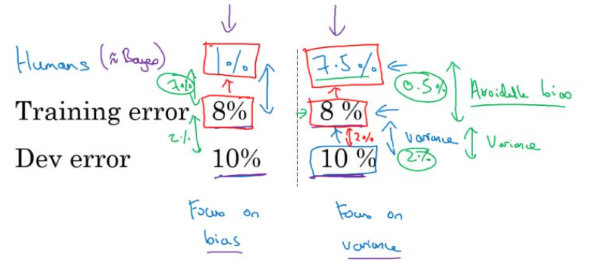 Humans (≈ Bayes) 1% 7.5%
7% 0.5% Avoidable bias
Training error 8% 8 %
2% 2% Variance Variance
Dev error 10% 10 % 2%
Focus on bias
Focus on variance